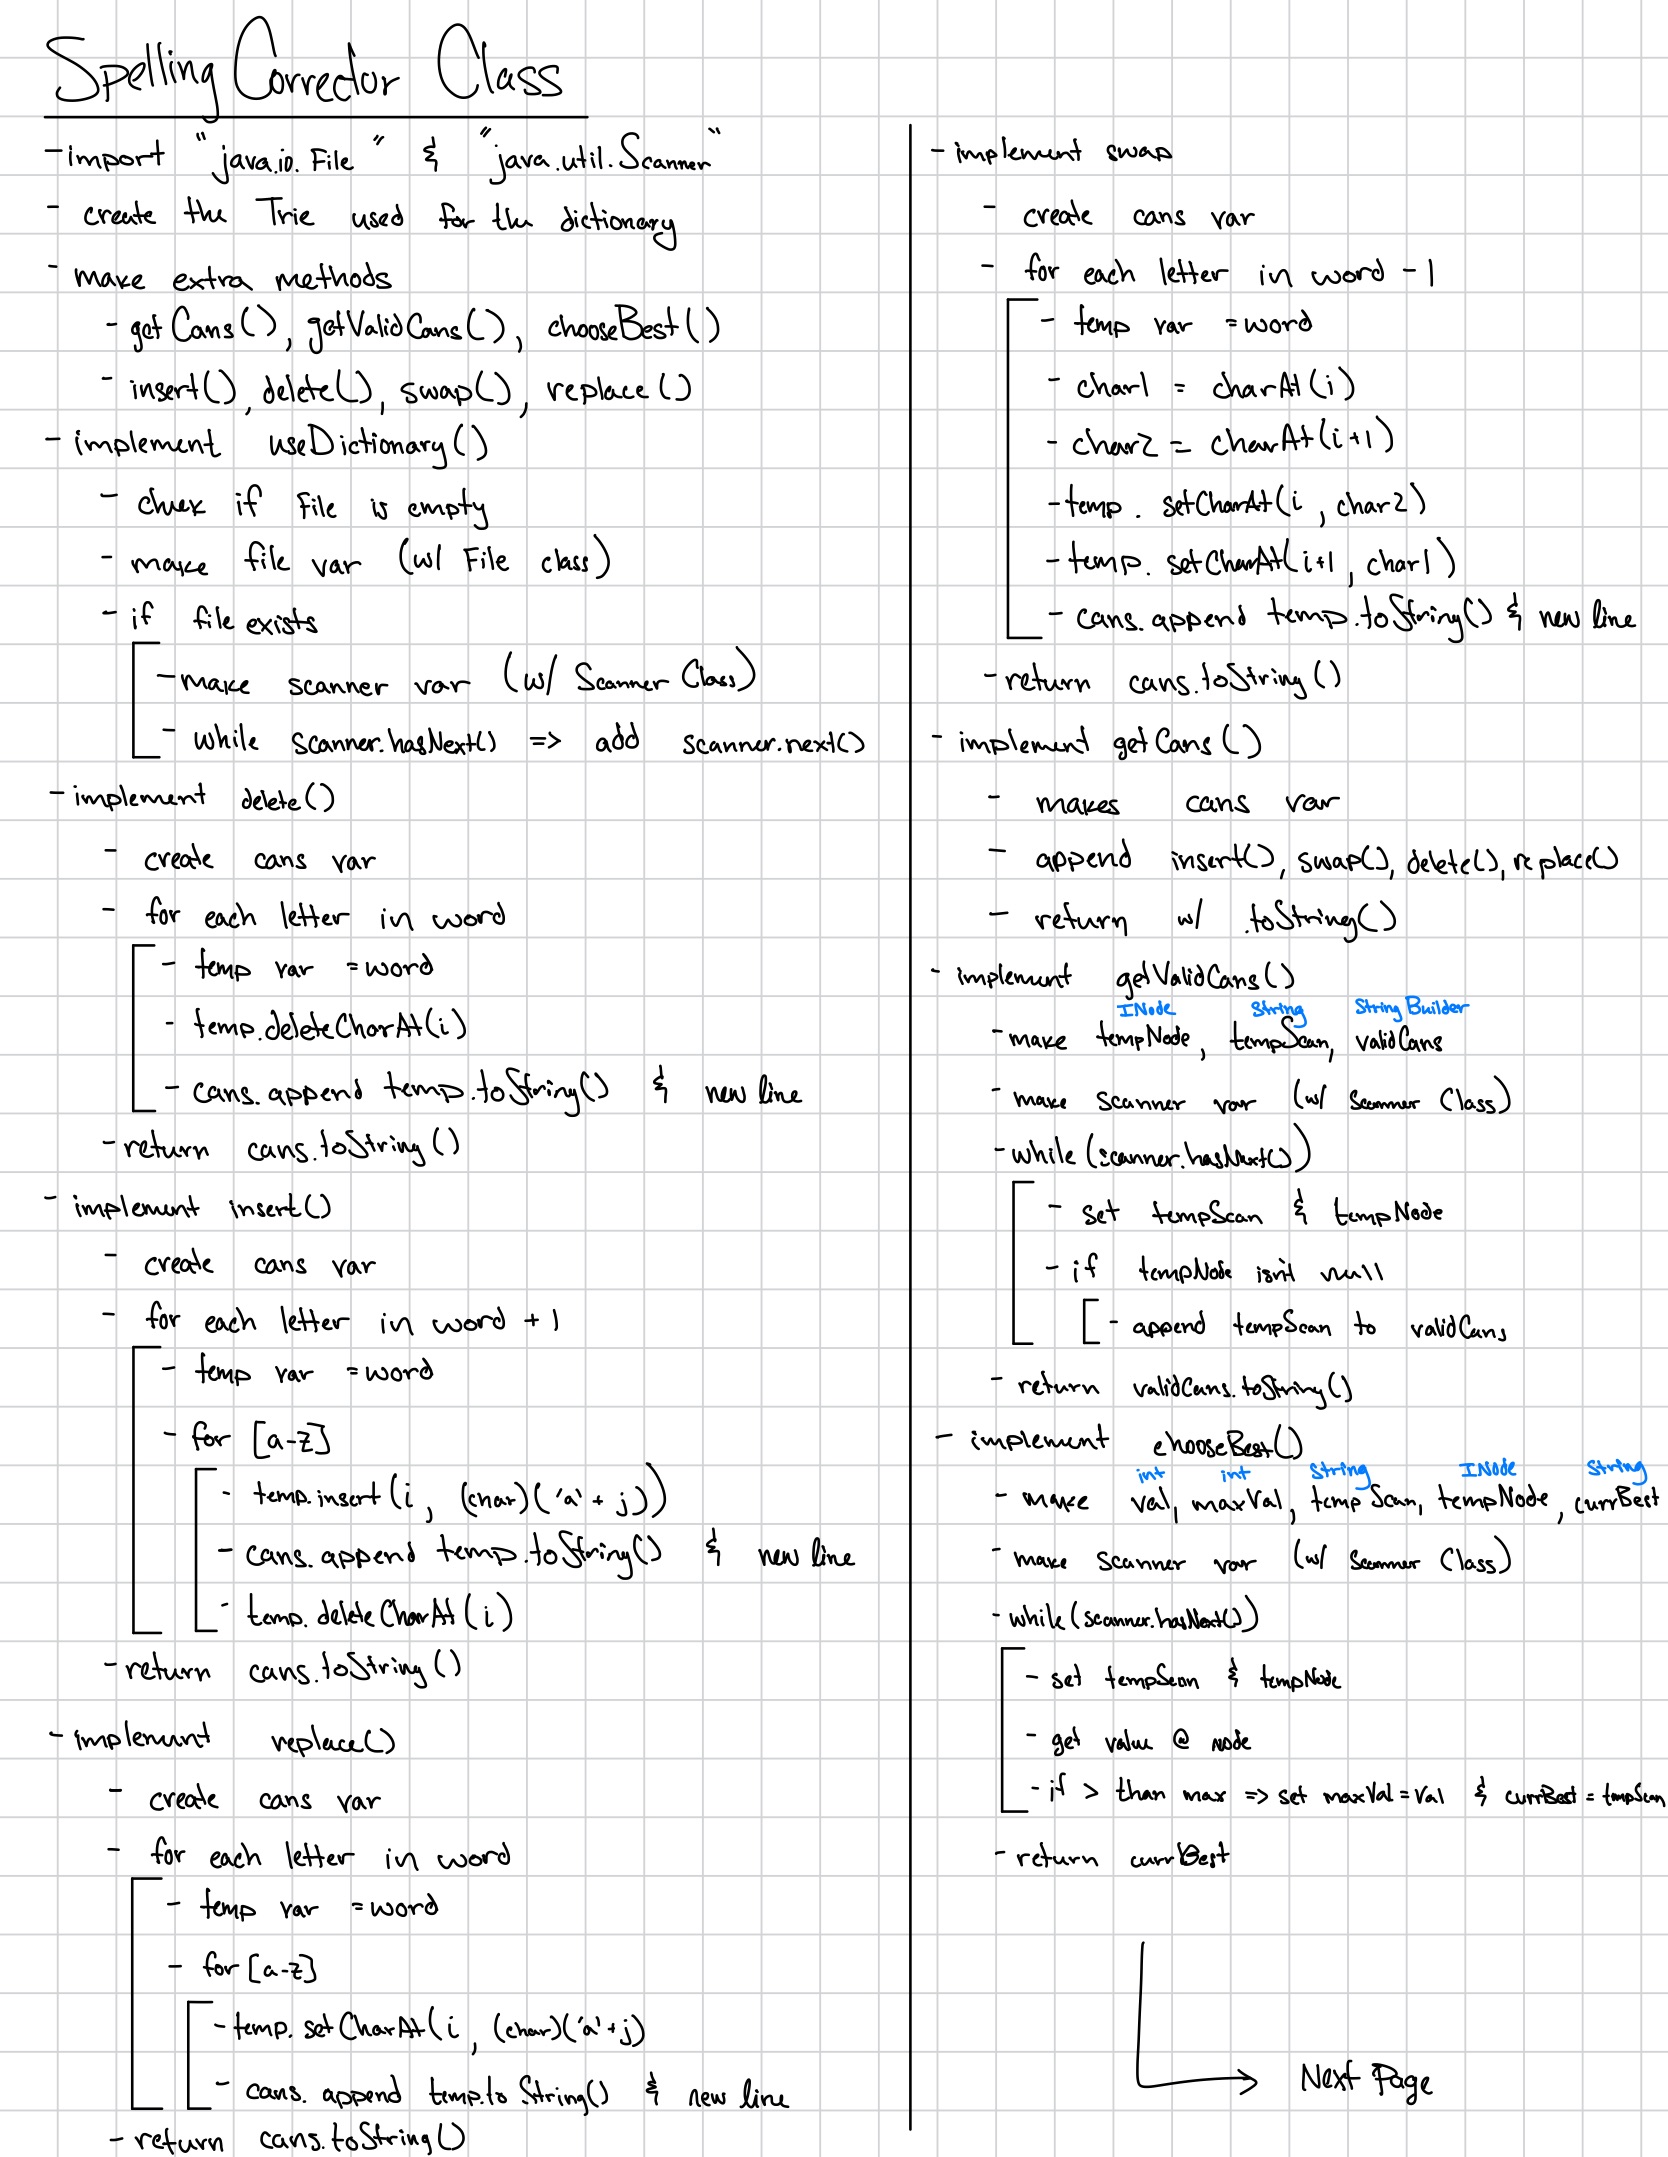 Spelling Corrector Class
- import "java.io.File" & "java.util.Scanner"
- create the Trie used for the dictionary
- make extra methods
- getCans(), getValidCans(), chooseBest()
- insert(), delete(), swap(), replace()
- implement useDictionary()
- check if file is empty
- make file var (w/ File class)
- if file exists
- make scanner var (w/ Scanner Class)
- while scanner.hasNext() => add scanner.next()
- implement delete()
- create cans var
- for each letter in word
- temp var = word
- temp.deleteCharAt(i)
- cans.append temp.toString() & new line
- return cans.toString()
- implement insert()
- create cans var
- for each letter in word + 1
- temp var = word
- for [a-z]
- temp.insert(i, (char)('a' + j))
- cans.append temp.toString() & new line
- temp.deleteCharAt(i)
- return cans.toString()
- implement replace()
- create cans var
- for each letter in word
- temp var = word
- for [a-z]
- temp.setCharAt(i, (char)('a'+j)
- cans.append temp.toString() & new line
- return cans.toString()
- implement swap
- create cans var
- for each letter in word - 1
- temp var = word
- char1 = charAt(i)
- char2 = charAt(i+1)
- temp.setCharAt(i, char2)
- temp.setCharAt(i+1, char1)
- cans.append temp.toString() & new line
- return cans.toString()
- implement getCans()
- makes cans var
- append insert(), swap(), delete(), replace()
- return w/ .toString()
- implement getValidCans()
INode String StringBuilder
- make tempNode, tempScan, validCans
- make scanner var (w/ Scanner Class)
- while (scanner.hasNext())
- set tempScan & tempNode
- if tempNode isn't null
- append tempScan to validCans
- return validCans.toString()
- implement chooseBest()
int int String INode String
- make val, maxVal, tempScan, tempNode, currBest
- make scanner var (w/ Scanner Class)
- while (scanner.hasNext())
- set tempScan & tempNode
- get value @ node
- if > than max => set maxVal = val & currBest = tempScan
- return currBest
Next Page